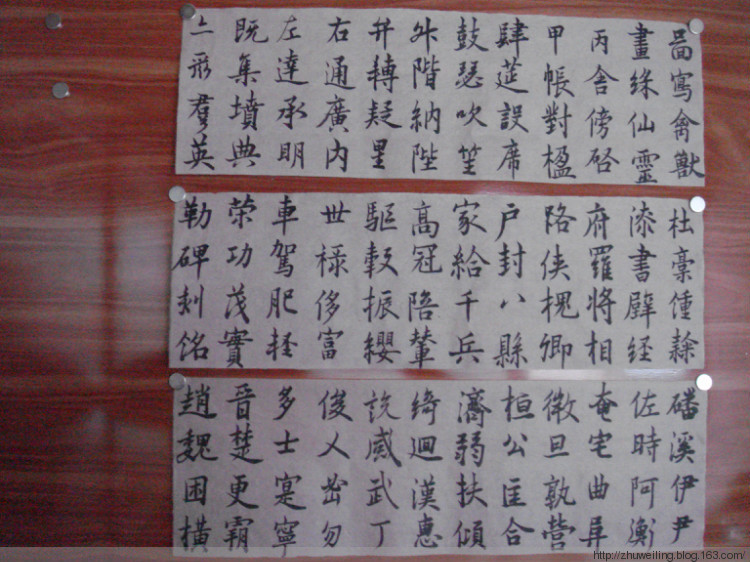 啚寫禽獸
畫綵仙靈
丙舍傍啓
甲帳對楹
肆莚設席
鼓瑟吹笙
升階納陛
弁轉疑星
右通廣内
左達承明
既集墳典
亦聚羣英
杜稾鍾隸
漆書壁経
府羅將相
路俠槐卿
户封八縣
家給千兵
高冠陪輦
驅轂振纓
世禄侈富
車駕肥軽
荣功茂實
勒碑刻銘
磻溪伊尹
佐時阿衡
奄宅曲阜
微旦孰營
桓公匡合
濟弱扶傾
綺迴漢惠
説感武丁
俊乂密勿
多士寔寧
晋楚更霸
趙魏困横
http://zhuweiling.blog.163.com/